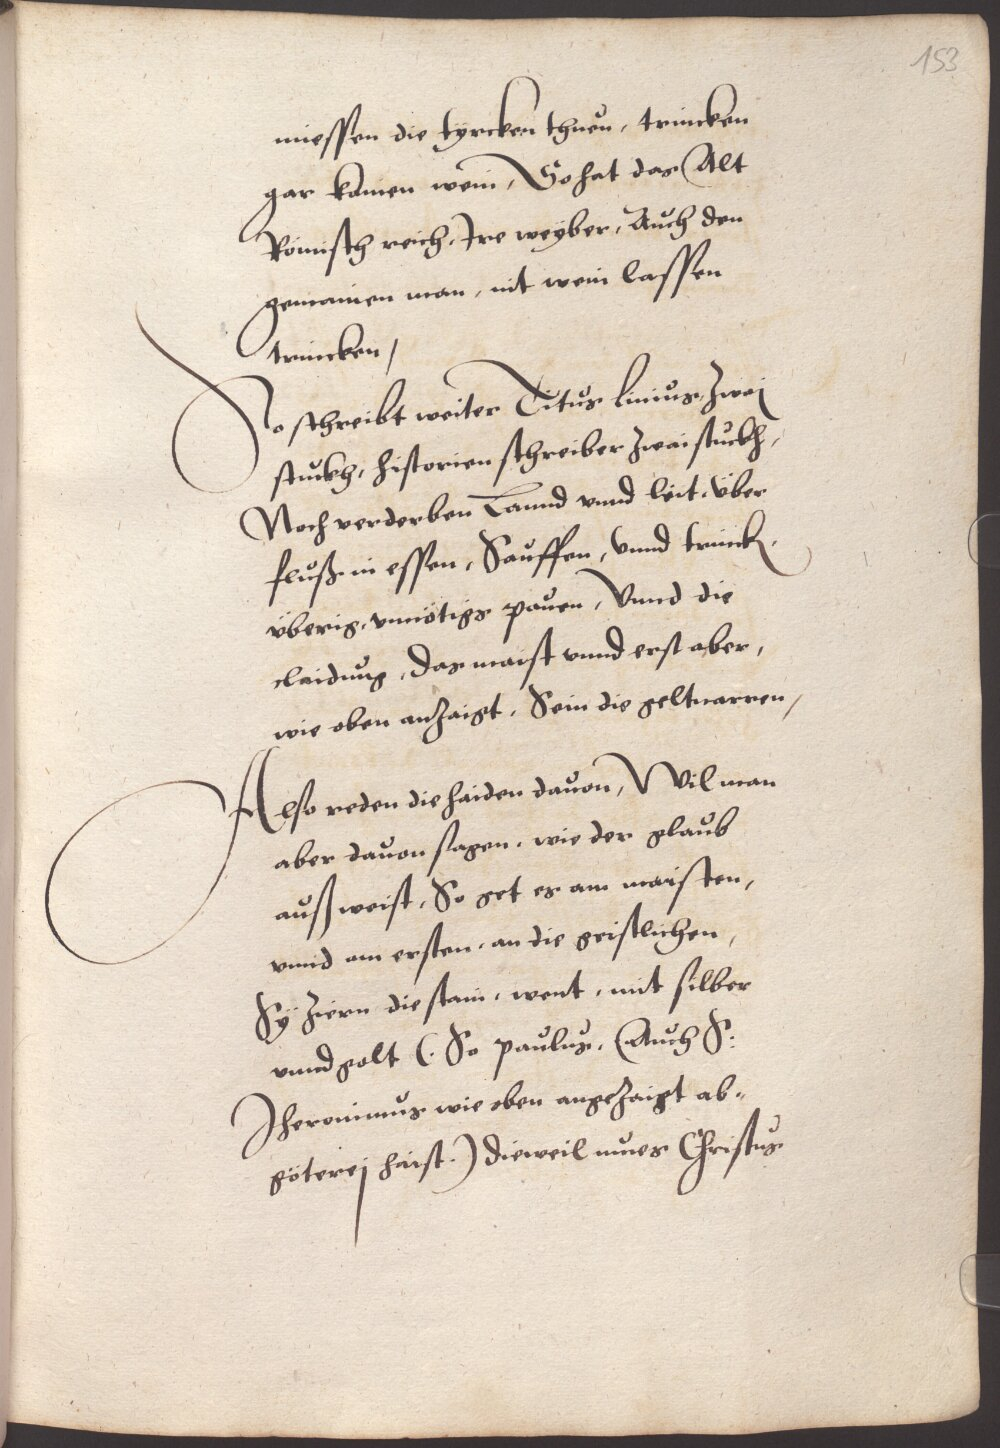 153
miessen die tyrcken thuen, trincken
gar kainen wein, So hat das Alt
Römisch reich, Ire weyber, Auch den
gemainen man, nit wein lassen
trincken,
So schreibt weiter Titus liuius, Zwei
stuckh, historien schreiber Zwai stuckh,
Noch verderben Lannd vnnd leit, über
fluß in essen, Sauffen, Vnnd trinck,
überig, vnnötigs pauen, Vnnd die
claidung, das maist vnnd erst aber,
wie oben anzaigt, Sein die geltnarren,
Also reden die haiden dauon, Wil man
aber dauon sagen, wie der glaub
außweist, So get es am maisten,
vnnd am ersten, an die geistlichen,
Sÿ Ziern die stain, went, mit silber
vnnd golt (. So paulus, Auch S:
Jheronimus wie oben angezaigt ab-
göterej haist.) dieweil nun es Christus